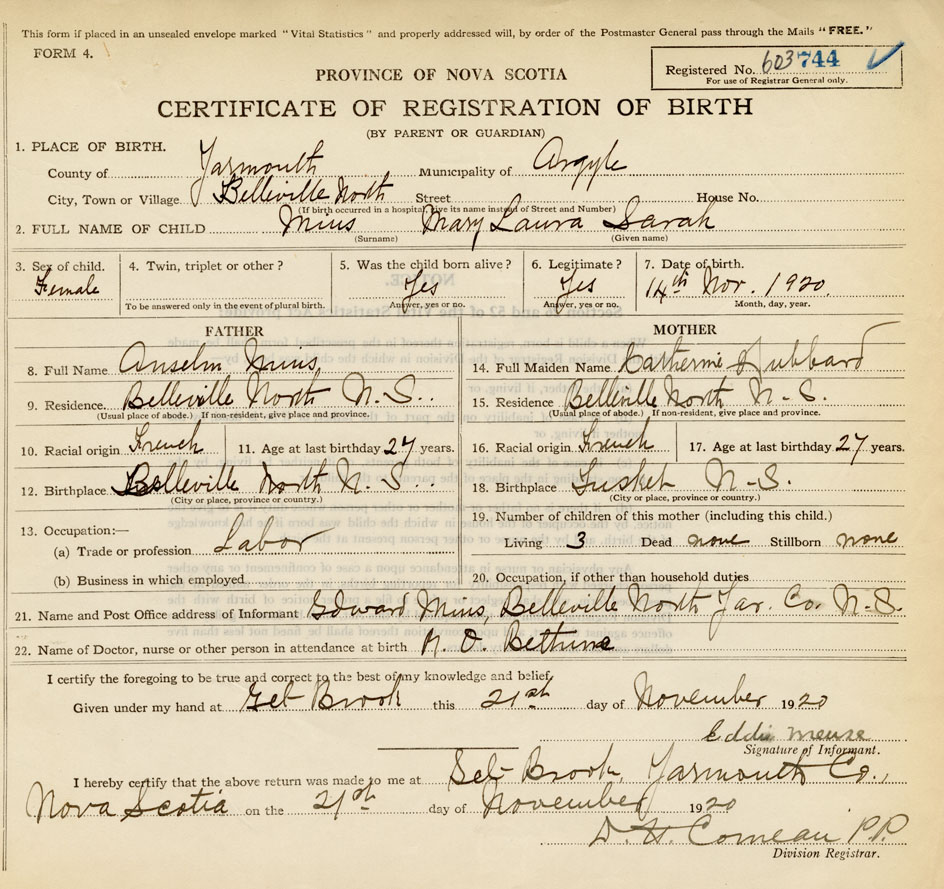 This form if placed in an unsealed envelope marked "Vital Statistics" and properly addressed will, by order of the Postmaster General pass through the Mails "FREE."
FORM 4.
Registered No. 603744
For use of Registrar General only.
PROVINCE OF NOVA SCOTIA
CERTIFICATE OF REGISTRATION OF BIRTH
(BY PARENT OR GUARDIAN)
1. PLACE OF BIRTH.
County of Yarmouth Municipality of Argyle
City, Town or Village Belleville North Street House No.
(If birth occurred in a hospital, give its name instead of Street and Number)
2. FULL NAME OF CHILD Mius Mary Laura Sarah
(Surname) (Given name)
3. Sex of child. 4. Twin, triplet or other? 5. Was the child born alive? 6. Legitimate? 7. Date of birth.
Female Yes Yes 14th Nov. 1920
To be answered only in the event of plural birth. Answer, yes or no. Answer, yes or no. Month, day, year.
FATHER MOTHER
8. Full Name Anselm Mius 14. Full Maiden Name Catherine Hubbard
9. Residence Belleville North N.S. 15. Residence Belleville North N.S.
(Usual place of abode.) If non-resident, give place and province. (Usual place of abode.) If non-resident, give place and province.
10. Racial origin French 11. Age at last birthday 27 years. 16. Racial origin French 17. Age at last birthday 27 years.
12. Birthplace Belleville North N.S. 18. Birthplace Tusket N.S.
(City or place, province or country.) (City or place, province or country.)
13. Occupation:— 19. Number of children of this mother (including this child.)
(a) Trade or profession Labor Living 3 Dead none Stillborn none
(b) Business in which employed 20. Occupation, if other than household duties
21. Name and Post Office address of Informant Edward Mius, Belleville North Yar. Co. N.S.
22. Name of Doctor, nurse or other person in attendance at birth N. O. Bethune
I certify the foregoing to be true and correct to the best of my knowledge and belief.
Given under my hand at Eel Brook this 21st day of November 1920
Eddie Meuse
Signature of Informant.
I hereby certify that the above return was made to me at Eel Brook, Yarmouth Co.,
Nova Scotia on the 21st day of November 1920
D. H. Comeau P.P.
Division Registrar.